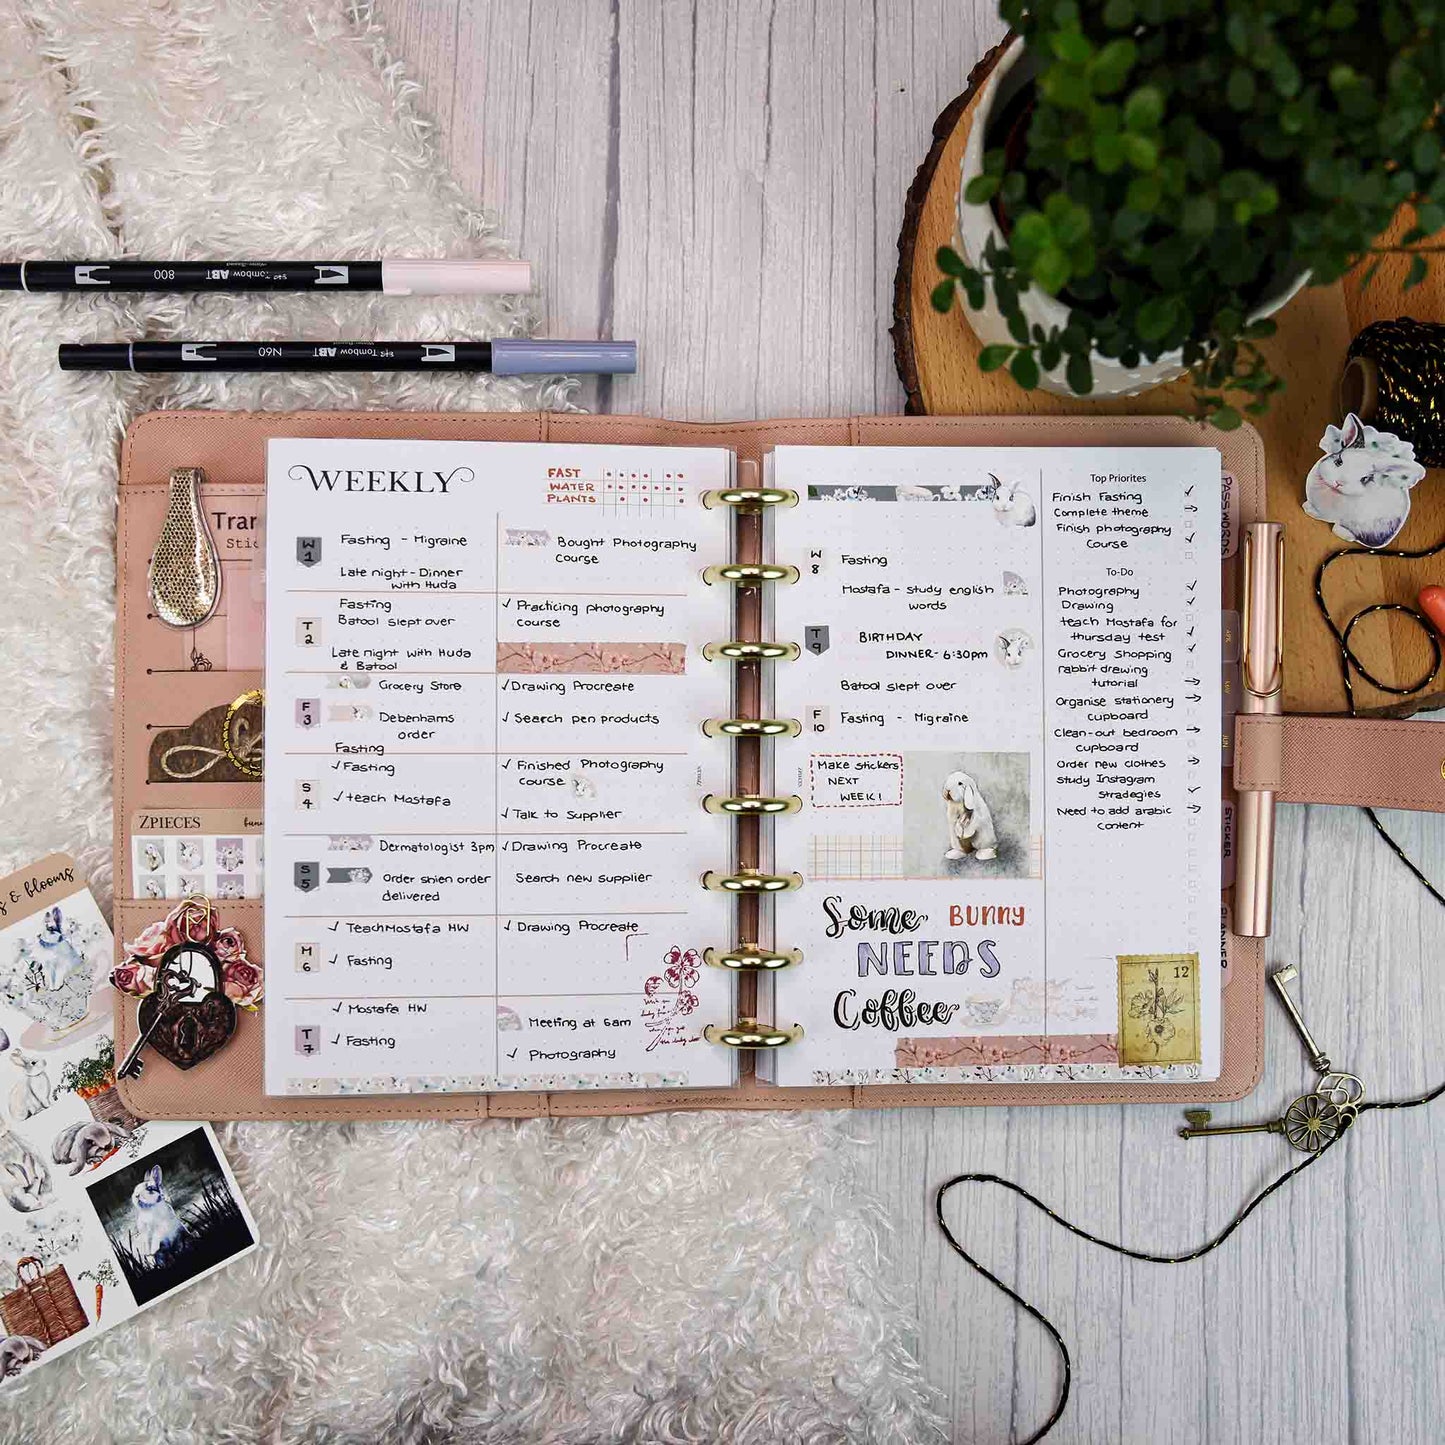 800
Tombow ABT
N60
Tombow ABT
Tran
Stic
ZPIECES
s & blooms
WEEKLY
FAST
WATER
PLANTS
W
1
Fasting - Migraine
Late night - Dinner
with Huda
Bought Photography
Course
T
2
Fasting
Batool slept over
Late night with Huda
& Batool
✓ Practicing photography
course
F
3
Grocery Store
Debenhams
order
Fasting
✓ Drawing Procreate
✓ Search pen products
S
4
✓ Fasting
✓ teach Mostafa
✓ Finished Photography
course
✓ Talk to Supplier
S
5
Dermatologist 3pm
Order shien order
delivered
✓ Drawing Procreate
Search new supplier
M
6
✓ Teach Mostafa HW
✓ Fasting
✓ Drawing Procreate
T
7
✓ Mostafa HW
✓ Fasting
Meeting at 6am
✓ Photography
W
8
Fasting
Mostafa - study english
words
T
9
BIRTHDAY
DINNER - 6:30pm
Batool slept over
F
10
Fasting - Migraine
Make stickers
NEXT
WEEK!
Some BUNNY
NEEDS
Coffee
12
Top Priorites
Finish Fasting ✓
Complete theme →
Finish photography
Course ✓
To-Do
Photography ✓
Drawing ✓
teach Mostafa for
thursday test ✓
Grocery shopping ✓
rabbit drawing
tutorial →
Organise stationery →
cupboard
Clean-out bedroom →
cupboard
Order new clothes →
Study Instagram
stradegies ✓
Need to add arabic →
content
PASSWORDS
APR
MAY
JUN
STICKER
PLANNER